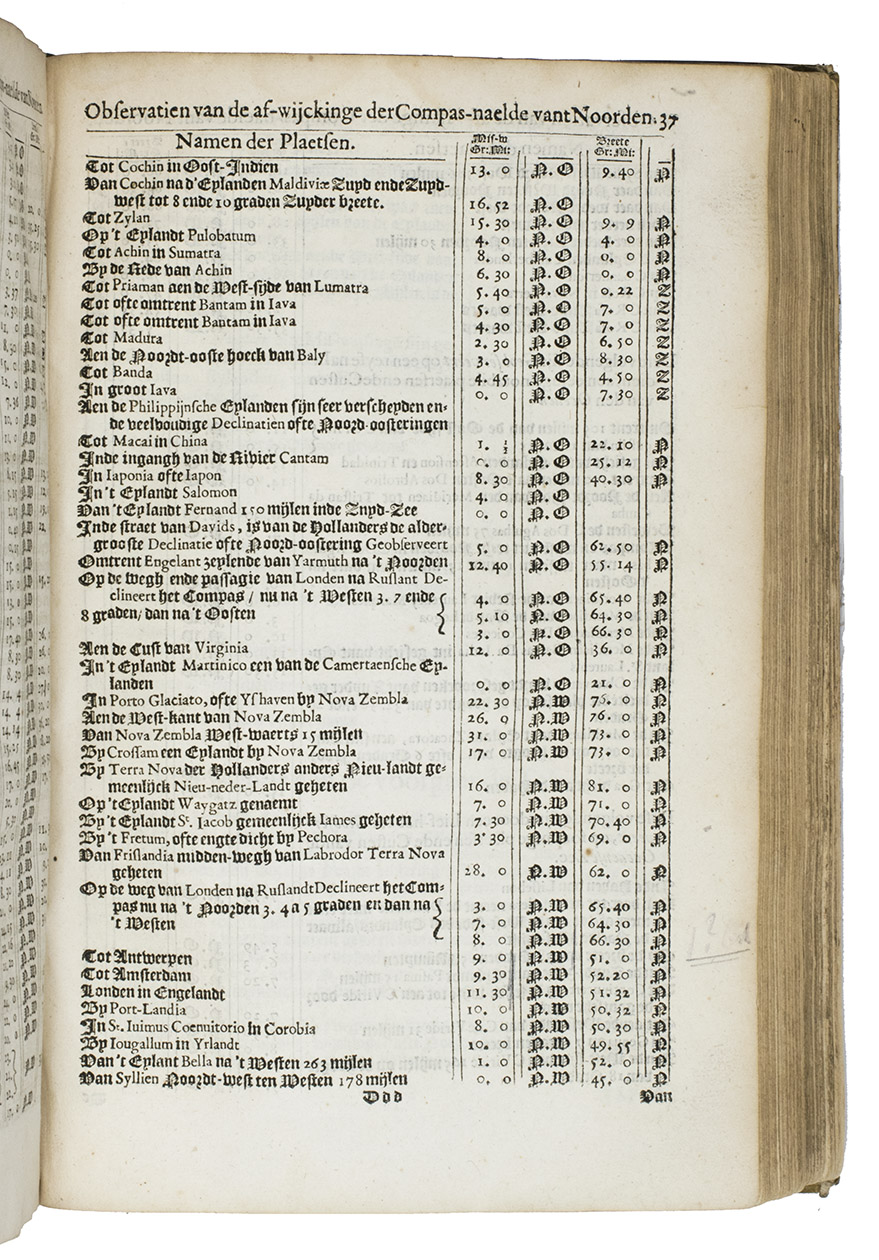 Observatien van de af-wijckinge der Compas-naelde vant Noorden. 37
Namen der Plaetsen. Misz-w Gr: Mi: Breete Gr: Mi:
Tot Cochin in Oost-Indien 13. 0 N. O 9. 40 N
Van Cochin na d'Eylanden Maldiviæ Zuyd ende Zuyd-
west tot 8 ende 10 graden Zuyder breete. 16. 52 N. O
Tot Zylan 15. 30 N. O 9. 9 N
Op 't Eylandt Pulobatum 4. 0 N. O 4. 0 N
Tot Achin in Sumatra 8. 0 N. O 0. 0 N
By de Rede van Achin 6. 30 N. O 0. 0 N
Tot Priaman aen de West-sijde van Lumatra 5. 40 N. O 0. 22 Z
Tot ofte omtrent Bantam in Iava 5. 0 N. O 7. 0 Z
Tot ofte omtrent Bantam in Iava 4. 30 N. O 7. 0 Z
Tot Madura 2. 30 N. O 6. 50 Z
Aen de Noordt-ooste hoeck van Baly 3. 0 N. O 8. 30 Z
Tot Banda 4. 45 N. O 4. 50 Z
In groot Iava 0. 0 N. O 7. 30 Z
Aen de Philippijnsche Eylanden sijn seer verscheyden en-
de veelvoudige Declinatien ofte Noord-oosteringen
Tot Macai in China 1. ½ N. O 22. 10 N
Inde ingangh van de Rivier Cantam 0. 0 N. O 25. 12 N
In Iaponia ofte Iapon 8. 30 N. O 40. 30 N
In 't Eylandt Salomon 4. 0 N. O
Van 't Eylandt Fernand 150 mijlen inde Zuyd-Zee 0. 0 N. O
Inde straet van Davids, is van de Hollanders de alder-
grooste Declinatie ofte Noord-oostering Geobserveert 5. 0 N. O 62. 50 N
Omtrent Engelant zeylende van Yarmuth na 't Noorden 12. 40 N. O 55. 14 N
Op de wegh ende passagie van Londen na Ruslant De-
clineert het Compas / nu na 't Westen 3. 7 ende { 4. 0 N. O 65. 40 N
8 graden / dan na 't Oosten 5. 10 N. O 64. 30 N
3. 0 N. O 66. 30 N
Aen de Cust van Virginia 12. 0 N. O 36. 0 N
In 't Eylandt Martinico een van de Camertaensche Ey-
landen 0. 0 N. O 21. 0 N
In Porto Glaciato, ofte Yshaven by Nova Zembla 22. 30 N. W 76. 0 N
Aen de West-kant van Nova Zembla 26. 0 N. W 76. 0 N
Van Nova Zembla West-waerts 15 mijlen 31. 0 N. W 73. 0 N
By Crossam een Eylandt by Nova Zembla 17. 0 N. W 73. 0 N
By Terra Nova der Hollanders anders Nieu-landt ge-
meenlijck Nieu-neder-Landt geheten 16. 0 N. W 81. 0 N
Op 't Eylandt Waygatz genaemt 7. 0 N. W 71. 0 N
By 't Eylandt St. Jacob gemeenlijck Iames geheten 7. 30 N. W 70. 40 N
By 't Fretum, ofte engte dicht by Pechora 3. 30 N. W 69. 0 N
Van Frislandia midden-wegh van Labrodor Terra Nova
geheten 28. 0 N. W 62. 0 N
Op de weg van Londen na Ruslandt Declineert het Com-
pas nu na 't Noorden 3. 4 a 5 graden en dan na { 3. 0 N. W 65. 40 N
't Westen 7. 0 N. W 64. 30 N
8. 0 N. W 66. 30 N
Tot Antwerpen 9. 0 N. W 51. 0 N
Tot Amsterdam 9. 30 N. W 52. 20 N
Londen in Engelandt 11. 30 N. W 51. 32 N
By Port-Landia 10. 0 N. W 50. 32 N
In St. Iuimus Coenuitorio in Corobia 8. 0 N. W 50. 30 N
By Iougallum in Yrlandt 10. 0 N. W 49. 55 N
Van 't Eylant Bella na 't Westen 263 mijlen 1. 0 N. W 52. 0 N
Van Syllien Noordt-west ten Westen 178 mijlen 0. 0 N. W 45. 0 N
Ddd Van